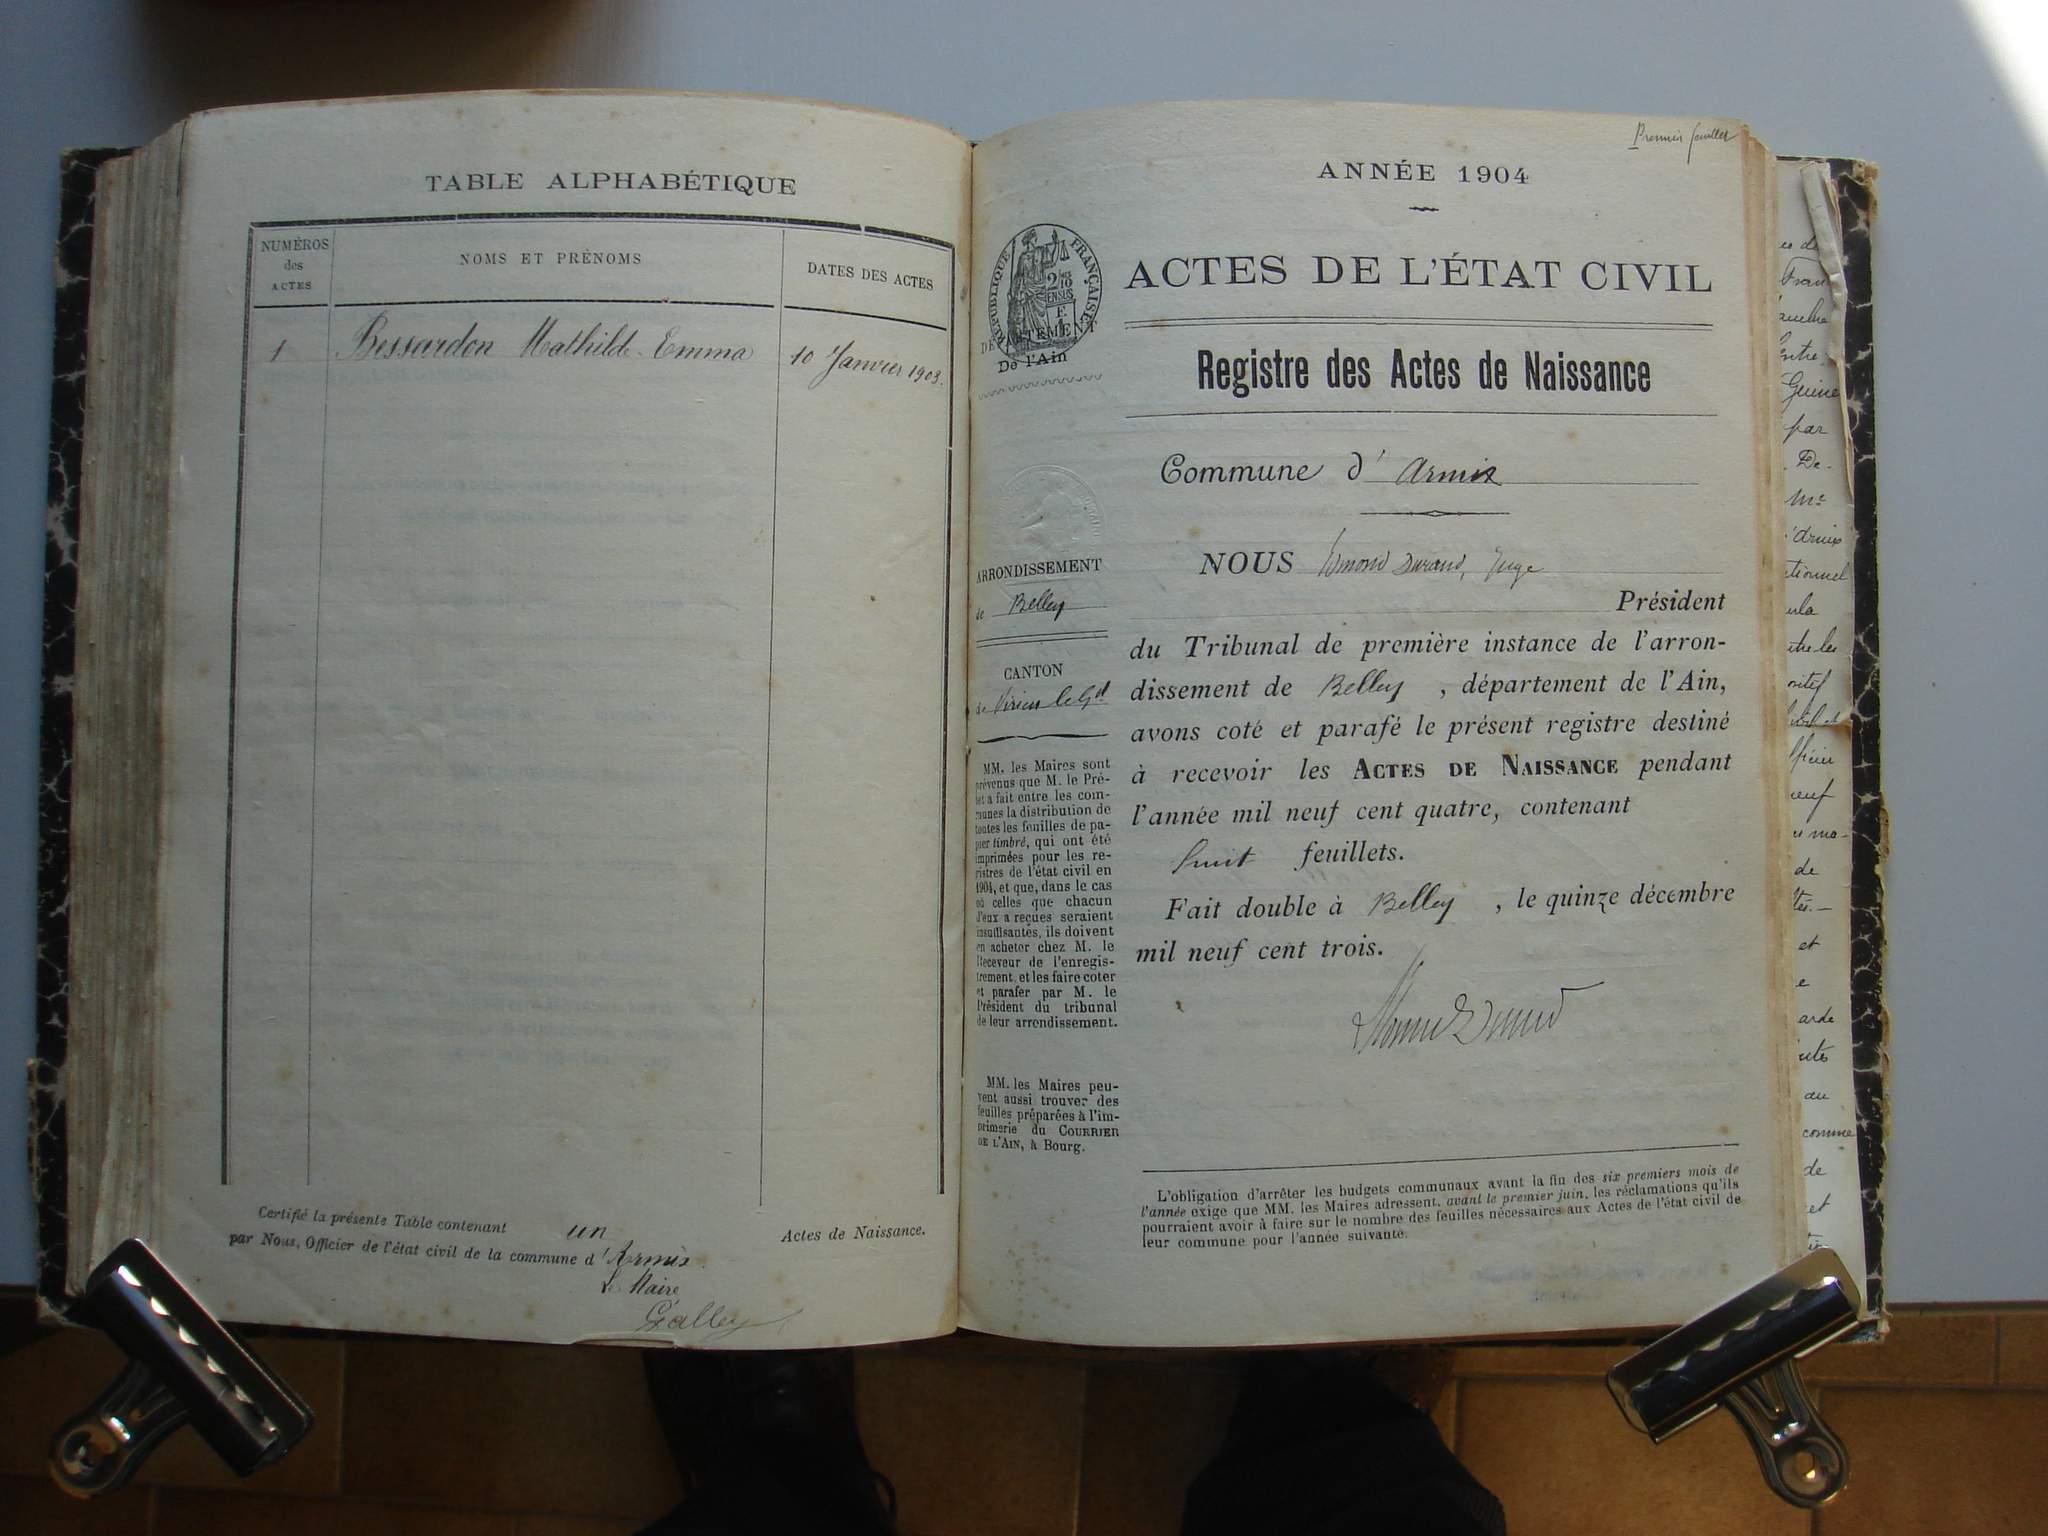 TABLE ALPHABÉTIQUE
NUMÉROS
des
ACTES
NOMS ET PRÉNOMS
DATES DES ACTES
1 Bessardon Mathilde Emma 10 Janvier 1903.
Certifié la présente Table contenant un Actes de Naissance.
par Nous, Officier de l'état civil de la commune d'Armix.
Le Maire
Gralley
Premier feuillet
ANNÉE 1904
RÉPUBLIQUE FRANÇAISE
DÉPARTEMENT
De l'Ain
ACTES DE L'ÉTAT CIVIL
Registre des Actes de Naissance
Commune d'Armix
ARRONDISSEMENT
de Belley
CANTON
de Virieu le Gd
MM. les Maires sont
prévenus que M. le Pré-
fet a fait entre les com-
munes la distribution de
toutes les feuilles de pa-
pier timbré, qui ont été
imprimées pour les re-
gistres de l'état civil en
1904, et que, dans le cas
où celles que chacun
d'eux a reçues seraient
insuffisantes, ils doivent
en acheter chez M. le
Receveur de l'enregis-
trement, et les faire coter
et parafer par M. le
Président du tribunal
de leur arrondissement.
MM. les Maires peu-
vent aussi trouver des
feuilles préparées à l'im-
primerie du COURRIER
DE L'AIN, à Bourg.
NOUS Edmond Durand, Juge
Président
du Tribunal de première instance de l'arron-
dissement de Belley, département de l'Ain,
avons coté et parafé le présent registre destiné
à recevoir les ACTES DE NAISSANCE pendant
l'année mil neuf cent quatre, contenant
huit feuillets.
Fait double à Belley, le quinze décembre
mil neuf cent trois.
L'obligation d'arrêter les budgets communaux avant la fin des six premiers mois de
l'année exige que MM. les Maires adressent, avant le premier juin, les réclamations qu'ils
pourraient avoir à faire sur le nombre des feuilles nécessaires aux Actes de l'état civil de
leur commune pour l'année suivante.